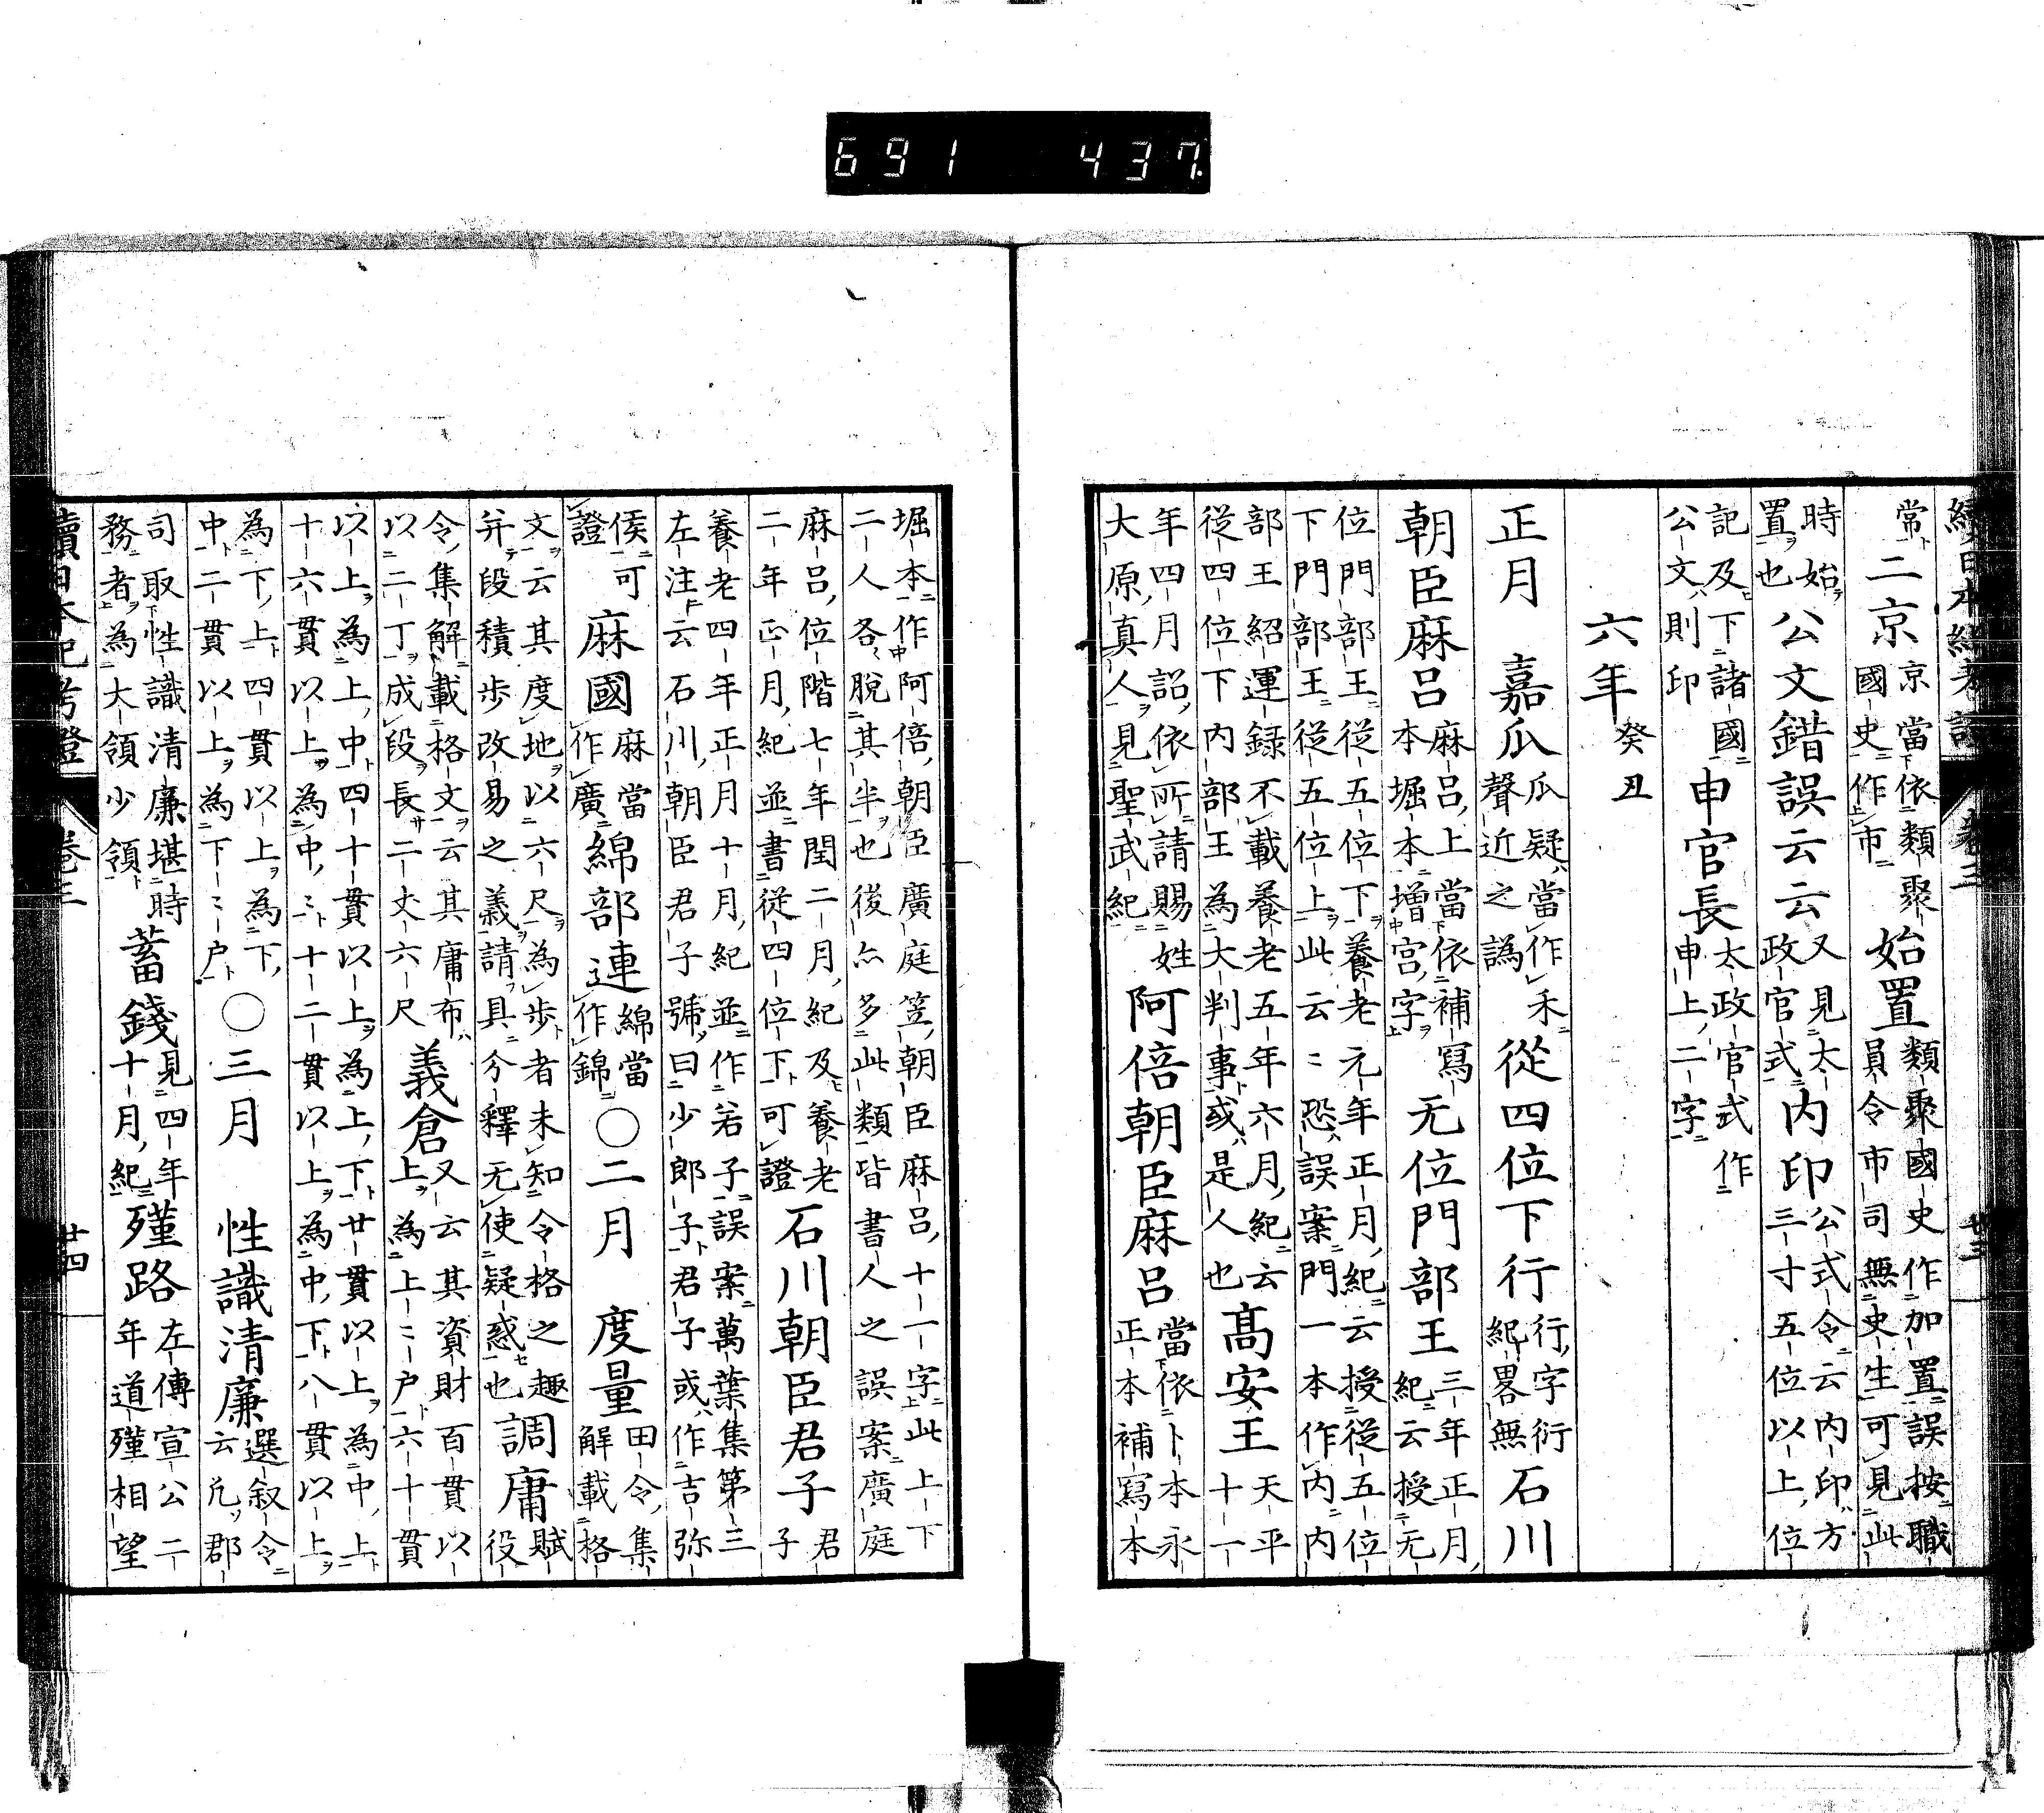 691 437
續日本紀考證 卷三 廿三
常 二京 京當依類聚國史作市 始置 類聚國史作加置誤按職員令市司無史生可見此
時始置也 公文錯誤云云 又見太政官式 内印 公式令云内印方三寸五位以上位
記及下諸國公文則印 申官長 太政官式作申上二字
六年 癸丑
正月 嘉瓜 瓜疑當作禾聲近之譌 從四位下行 行字衍紀畧無 石川
朝臣麻呂 麻呂上當依補寫本堀本增宮字 无位門部王 三年正月紀云授无
位門部王從五位下養老元年正月紀云授從五位下門部王從五位上此云〻恐誤案門一本作内内
部王紹運録不載養老五年六月紀云從四位下内部王為大判事或是人也 高安王 天平十一
年四月詔依所請賜姓大原真人見聖武紀 阿倍朝臣麻呂 當依卜本永正本補寫本
堀本作阿倍朝臣廣庭笠朝臣麻呂十一字此上下二人各脱其半也後亦多此類皆書人之誤案廣庭
麻呂位階七年閏二月紀及養老二年正月紀並書從四位下可證 石川朝臣君子 君子
養老四年正月十月紀並作若子誤案萬葉集第三左注云石川朝臣君子號曰少郎子君子或作吉弥
侯可證 麻國 麻當作廣 綿部連 綿當作錦 〇二月 度量 田令集解載格
文云其度地以六尺為步者未知令格之趣并段積步改易之義請具今釋无使疑惑也 調庸 賦役
令集解載格文云其庸布以二丁成段長二丈六尺 義倉 又云其資財百貫以上為上〻户六十貫
以上為上中四十貫以上為上下廿貫以上為中上十六貫以上為中〻十二貫以上為中下八貫以上
為下上四貫以上為下中二貫以上為下〻户 〇三月 性識清廉 選叙令云凡郡
司取性識清廉堪時務者為大領少領 蓄錢 見四年十月紀 殣路 左傳宣公二年道殣相望
續日本紀考證 卷三 廿四